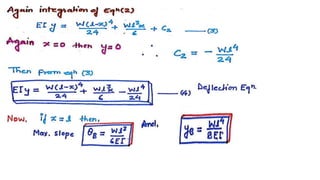 Again integration of Eqn(2)
EIy = W(l-x)⁴/24 + Wl³x/6 + C₂ —(3)
Again x=0 then y=0 ∴ C₂ = - Wl⁴/24
Then from eqn (3)
EIy = W(l-x)⁴/24 + Wl³x/6 - Wl⁴/24 —(4) Deflection Eqn
Now, if x=l then,
Max. slope θB = Wl³/6EI And, yB = Wl⁴/8EI